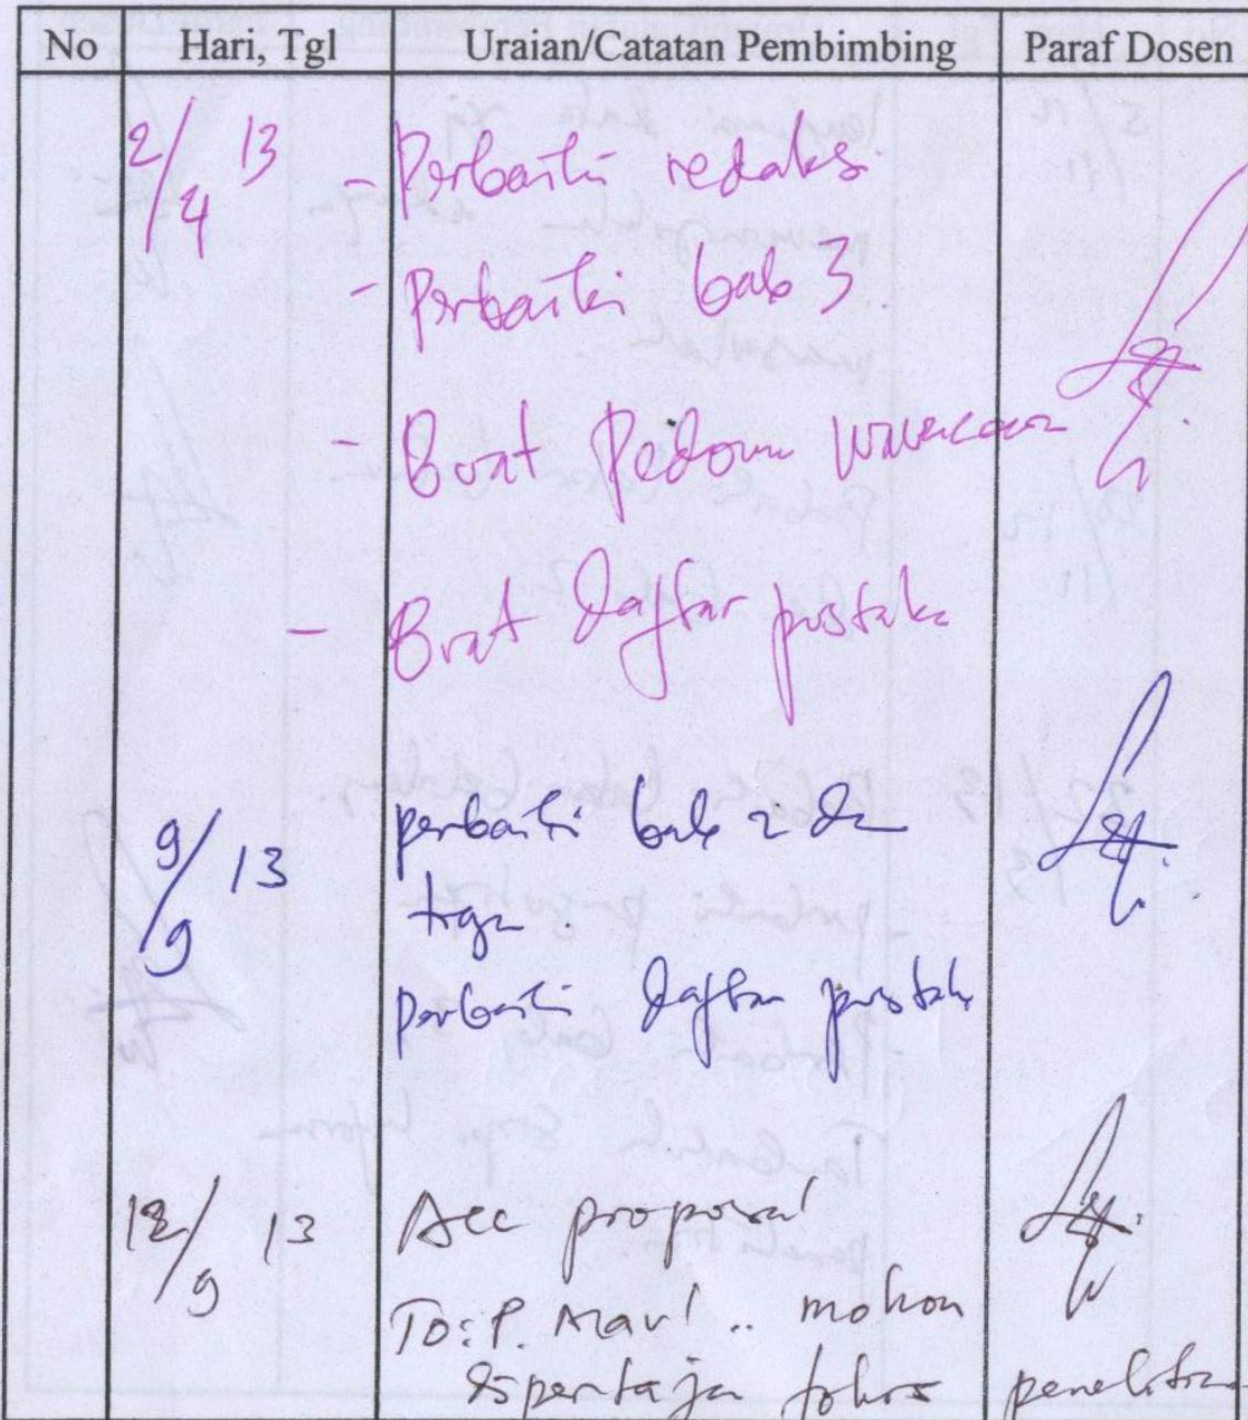 No Hari, Tgl Uraian/Catatan Pembimbing Paraf Dosen
2/4 13 - Perbaiki redaksi
- Perbaiki bab 3.
- Buat Pedoman wawancara
- Buat daftar pustaka
9/9 13 perbaiki bab 2 dan
tiga.
perbaiki daftar pustaka
12/9 13 Acc proposal
To: P. .. mohon
fokus penelitian